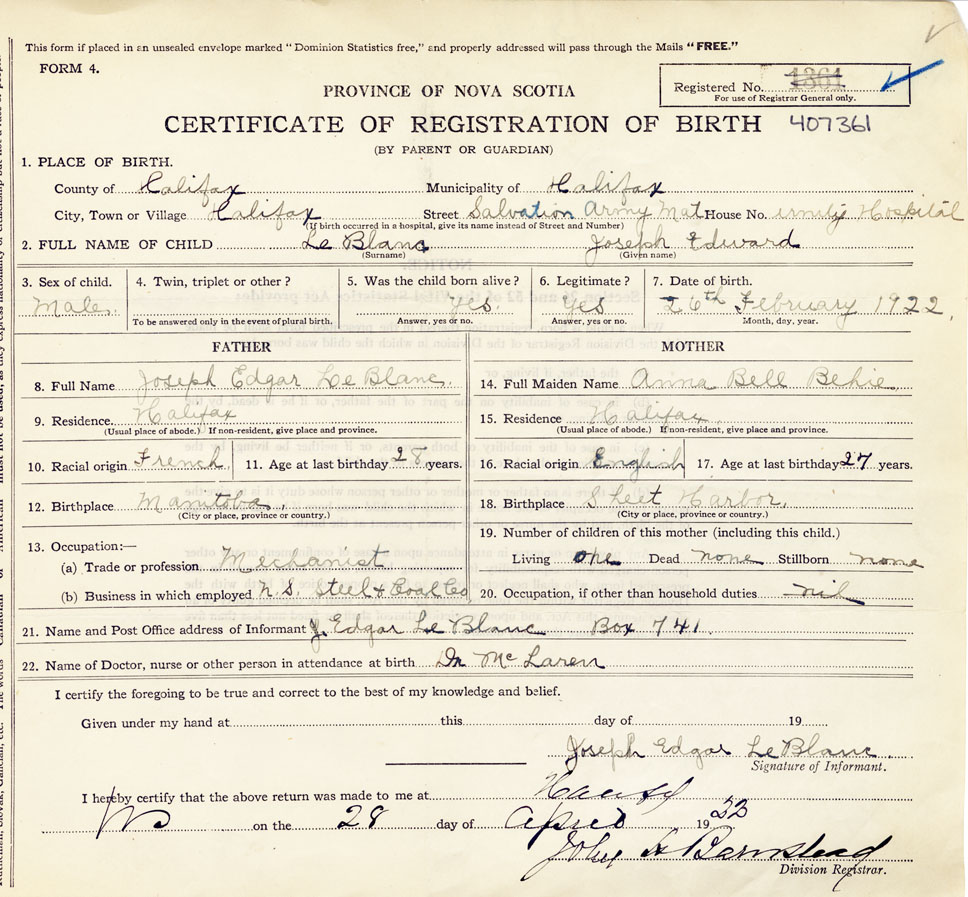 This form if placed in an unsealed envelope marked "Dominion Statistics free," and properly addressed will pass through the Mails "FREE."
FORM 4.
Registered No. 1361
For use of Registrar General only.
PROVINCE OF NOVA SCOTIA
CERTIFICATE OF REGISTRATION OF BIRTH 407361
(BY PARENT OR GUARDIAN)
1. PLACE OF BIRTH.
County of Halifax Municipality of Halifax
City, Town or Village Halifax Street Salvation Army Mat House No. ernity Hospital
(If birth occurred in a hospital, give its name instead of Street and Number)
2. FULL NAME OF CHILD Le Blanc Joseph Edward
(Surname) (Given name)
3. Sex of child. 4. Twin, triplet or other? 5. Was the child born alive? 6. Legitimate? 7. Date of birth.
Male. Yes. Yes 26th February 1922.
To be answered only in the event of plural birth. Answer, yes or no. Answer, yes or no. Month, day, year.
FATHER
8. Full Name Joseph Edgar Le Blanc.
9. Residence Halifax
(Usual place of abode.) If non-resident, give place and province.
10. Racial origin French 11. Age at last birthday 28 years.
12. Birthplace Manitoba.
(City or place, province or country.)
13. Occupation:—
(a) Trade or profession Mechanist
(b) Business in which employed N.S. Steel & Coal Co
MOTHER
14. Full Maiden Name Anna Bell Behie
15. Residence Halifax
(Usual place of abode.) If non-resident, give place and province.
16. Racial origin English 17. Age at last birthday 27 years.
18. Birthplace Sheet Harbor,
(City or place, province or country.)
19. Number of children of this mother (including this child.)
Living one Dead none Stillborn none
20. Occupation, if other than household duties nil
21. Name and Post Office address of Informant J. Edgar Le Blanc Box 741.
22. Name of Doctor, nurse or other person in attendance at birth Dr McLaren
I certify the foregoing to be true and correct to the best of my knowledge and belief.
Given under my hand at this day of 19
Joseph Edgar Le Blanc
Signature of Informant.
I hereby certify that the above return was made to me at
on the 28 day of April 19 22
John H Barnstead
Division Registrar.